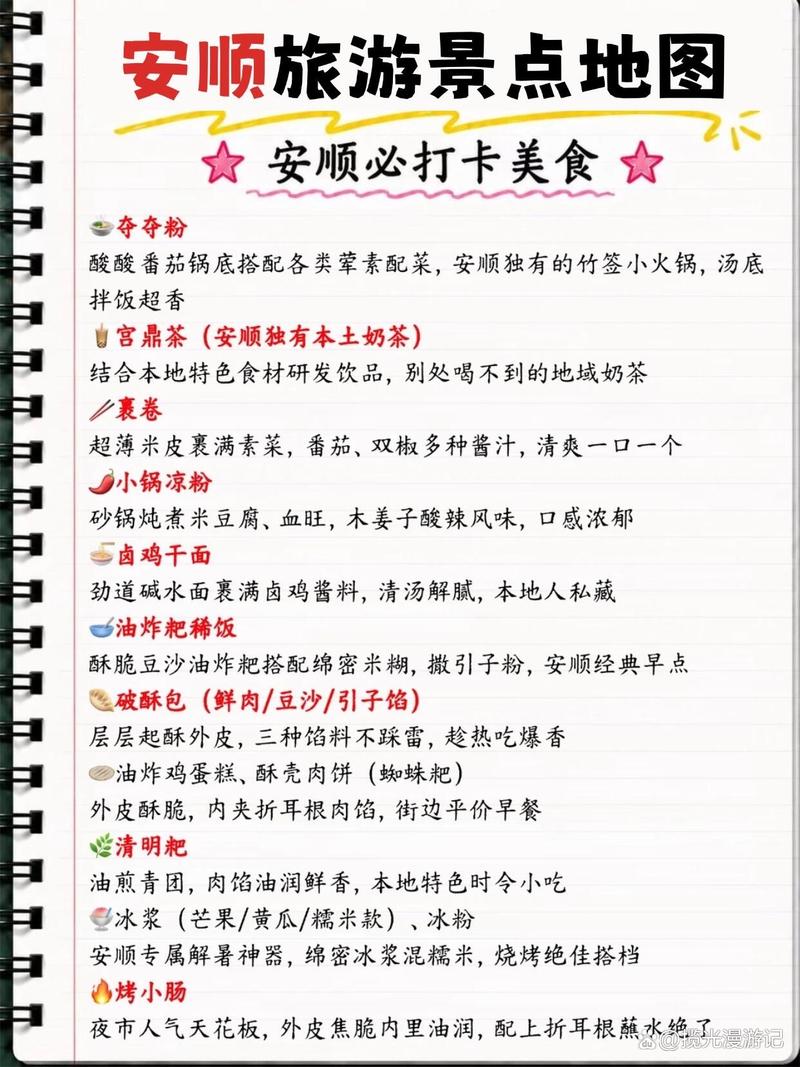 安顺旅游景点地图
安顺必打卡美食
夺夺粉
酸酸番茄锅底搭配各类荤素配菜，安顺独有的竹签小火锅，汤底
拌饭超香
宫鼎茶（安顺独有本土奶茶）
结合本地特色食材研发饮品，别处喝不到的地域奶茶
裹卷
超薄米皮裹满素菜，番茄、双椒多种酱汁，清爽一口一个
小锅凉粉
砂锅炖煮米豆腐、血旺，木姜子酸辣风味，口感浓郁
卤鸡干面
劲道碱水面裹满卤鸡酱料，清汤解腻，本地人私藏
油炸粑稀饭
酥脆豆沙油炸粑搭配绵密米糊，撒引子粉，安顺经典早点
破酥包（鲜肉/豆沙/引子馅）
层层起酥外皮，三种馅料不踩雷，趁热吃爆香
油炸鸡蛋糕、酥壳肉饼（蜘蛛粑）
外皮酥脆，内夹折耳根肉馅，街边平价早餐
清明粑
油煎青团，肉馅油润鲜香，本地特色时令小吃
冰浆（芒果/黄瓜/糯米款）、冰粉
安顺专属解暑神器，绵密冰浆混糯米，烧烤绝佳搭档
烤小肠
夜市人气天花板，外皮焦脆内里油润，配上折耳根蘸水绝了
@揽光漫游记